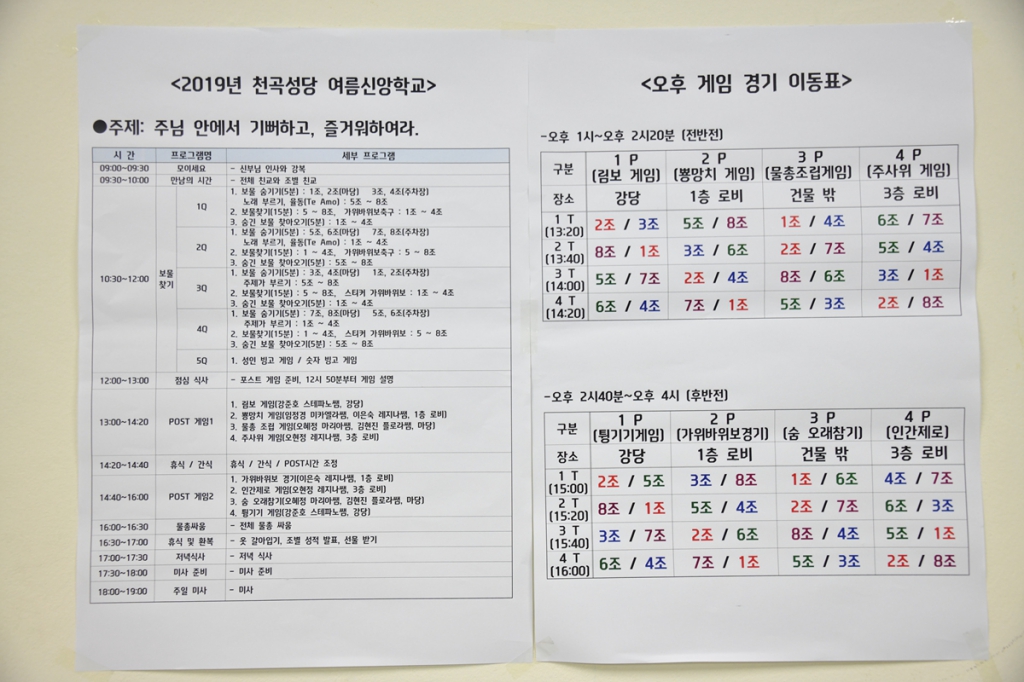 <2019년 천곡성당 여름신앙학교>
●주제: 주님 안에서 기뻐하고, 즐거워하여라.
시 간 프로그램명 세부 프로그램
09:00~09:30 모이세요 - 신부님 인사와 강복
09:30~10:00 만남의 시간 - 전체 친교와 조별 친교
10:30~12:00 보물 찾기
1Q
1. 보물 숨기기(5분) : 1조, 2조(마당) 3조, 4조(주차장)
노래 부르기, 율동(Te Amo) : 5조 ~ 8조
2. 보물찾기(15분) : 5 ~ 8조, 가위바위보축구 : 1조 ~ 4조
3. 숨긴 보물 찾아오기(5분) : 1조 ~ 4조
2Q
1. 보물 숨기기(5분) : 5조, 6조(마당) 7조, 8조(주차장)
노래 부르기, 율동(Te Amo) : 1조 ~ 4조
2. 보물찾기(15분) : 1 ~ 4조, 가위바위보축구 : 5 ~ 8조
3. 숨긴 보물 찾아오기(5분) : 5조 ~ 8조
3Q
1. 보물 숨기기(5분) : 3조, 4조(마당) 1조, 2조(주차장)
주제가 부르기 : 5조 ~ 8조
2. 보물찾기(15분) : 5 ~ 8조, 스티커 가위바위보 : 1조 ~ 4조
3. 숨긴 보물 찾아오기(5분) : 1조 ~ 4조
4Q
1. 보물 숨기기(5분) : 7조, 8조(마당) 5조, 6조(주차장)
주제가 부르기 : 1조 ~ 4조
2. 보물찾기(15분) : 1 ~ 4조, 스티커 가위바위보 : 5 ~ 8조
3. 숨긴 보물 찾아오기(5분) : 5조 ~ 8조
5Q 1. 성인 빙고 게임 / 숫자 빙고 게임
12:00~13:00 점심 식사 - 포스트 게임 준비, 12시 50분부터 게임 설명
13:00~14:20 POST 게임1
1. 림보 게임(강준호 스테파노쌤, 강당)
2. 뿅망치 게임(임정경 미카엘라쌤, 이은숙 레지나쌤, 1층 로비)
3. 물총 조립 게임(오혜정 마리아쌤, 김현진 플로라쌤, 마당)
4. 주사위 게임(오현정 레지나쌤, 3층 로비)
14:20~14:40 휴식 / 간식 휴식 / 간식 / POST시간 조정
14:40~16:00 POST 게임2
1. 가위바위보 경기(이은숙 레지나쌤, 1층 로비)
2. 인간제로 게임(오현정 레지나쌤, 3층 로비)
3. 숨 오래참기(오혜정 마리아쌤, 김현진 플로라쌤, 마당)
4. 튕기기 게임(강준호 스테파노쌤, 강당)
16:00~16:30 물총싸움 - 전체 물총 싸움
16:30~17:00 휴식 및 환복 - 옷 갈아입기, 조별 성적 발표, 선물 받기
17:00~17:30 저녁식사 - 저녁 식사
17:30~18:00 미사 준비 - 미사 준비
18:00~19:00 주일 미사 - 미사
<오후 게임 경기 이동표>
-오후 1시~오후 2시20분 (전반전)
구분 1 P (림보 게임) 2 P (뿅망치 게임) 3 P (물총조립게임) 4 P (주사위 게임)
장소 강당 1층 로비 건물 밖 3층 로비
1 T (13:20) 2조 / 3조 5조 / 8조 1조 / 4조 6조 / 7조
2 T (13:40) 8조 / 1조 3조 / 6조 2조 / 7조 5조 / 4조
3 T (14:00) 5조 / 7조 2조 / 4조 8조 / 6조 3조 / 1조
4 T (14:20) 6조 / 4조 7조 / 1조 5조 / 3조 2조 / 8조
-오후 2시40분~오후 4시 (후반전)
구분 1 P (튕기기게임) 2 P (가위바위보경기) 3 P (숨 오래참기) 4 P (인간제로)
장소 강당 1층 로비 건물 밖 3층 로비
1 T (15:00) 2조 / 5조 3조 / 8조 1조 / 6조 4조 / 7조
2 T (15:20) 8조 / 1조 5조 / 4조 2조 / 7조 6조 / 3조
3 T (15:40) 3조 / 7조 2조 / 6조 8조 / 4조 5조 / 1조
4 T (16:00) 6조 / 4조 7조 / 1조 5조 / 3조 2조 / 8조